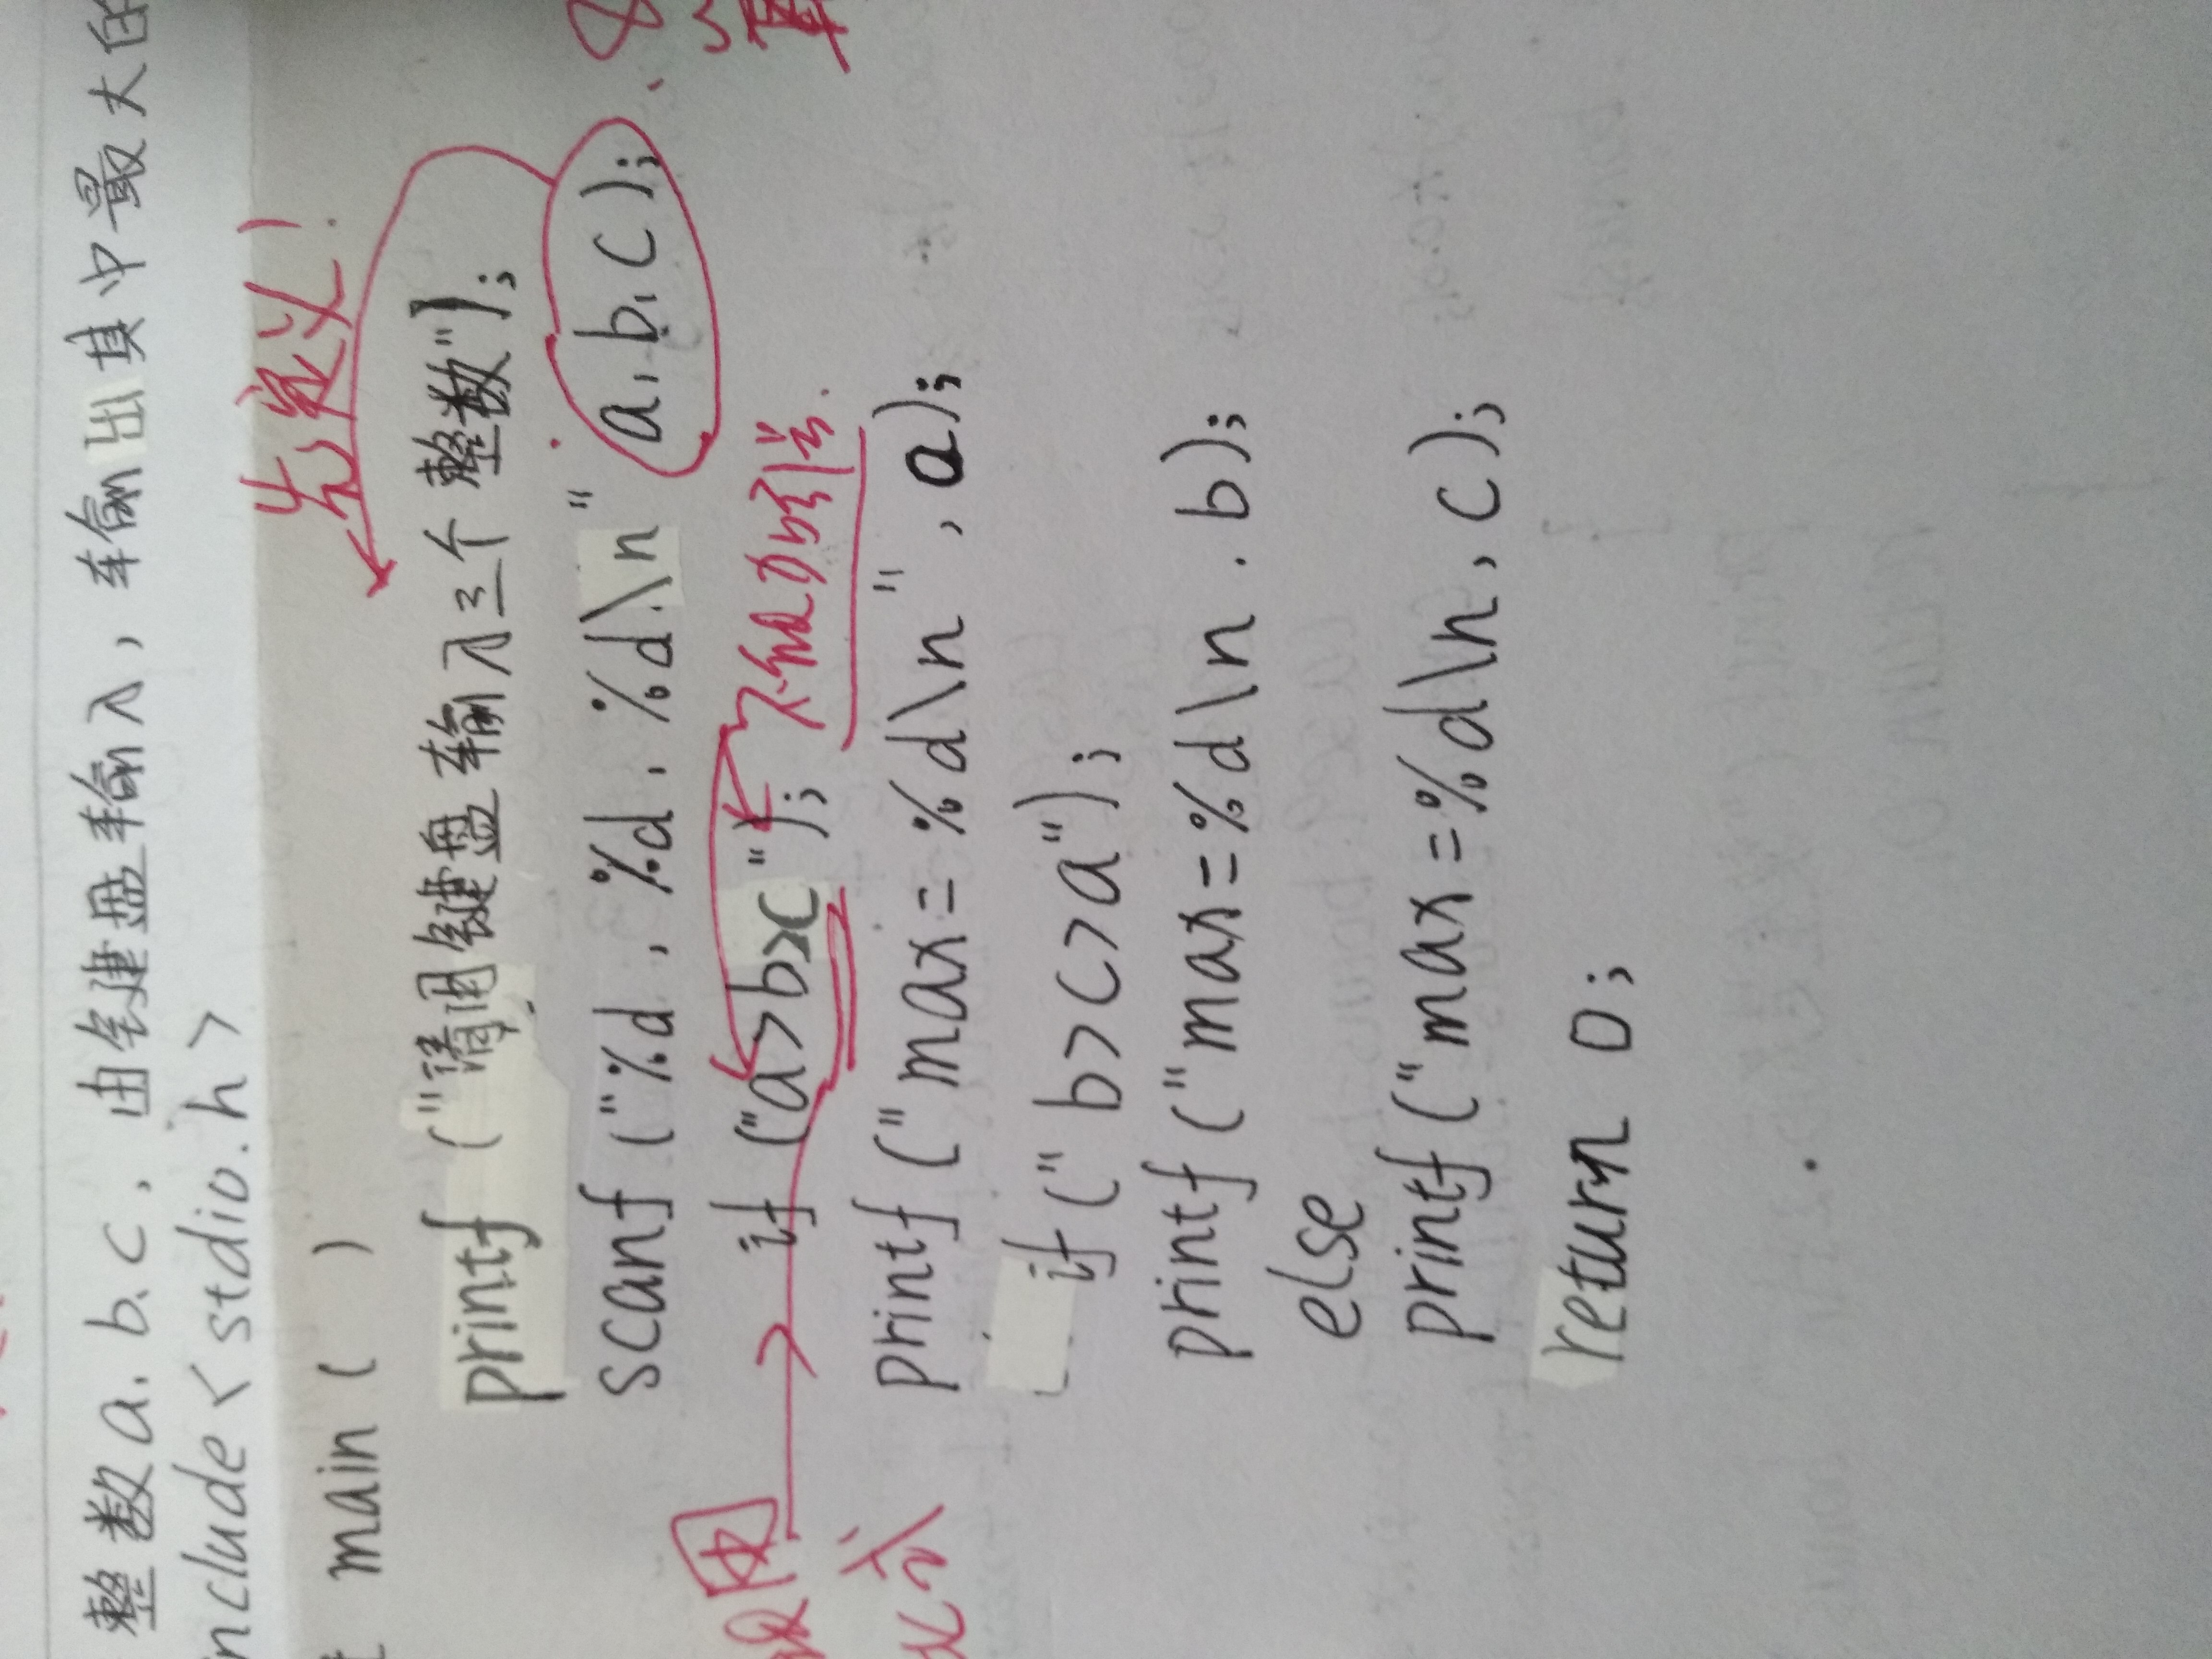 整数a、b、c，由键盘输入，输出其中最大的
nclude<stdio.h>
先定义！
main( )
printf("请用键盘输入三个整数");
scanf("%d, %d, %d\n" a, b, c);
if ("a>b>c"); 不能加引号.
用
式
printf("max=%d\n", a);
if("b>c>a");
printf("max=%d\n . b);
else
printf("max=%d\n, c);
return 0;